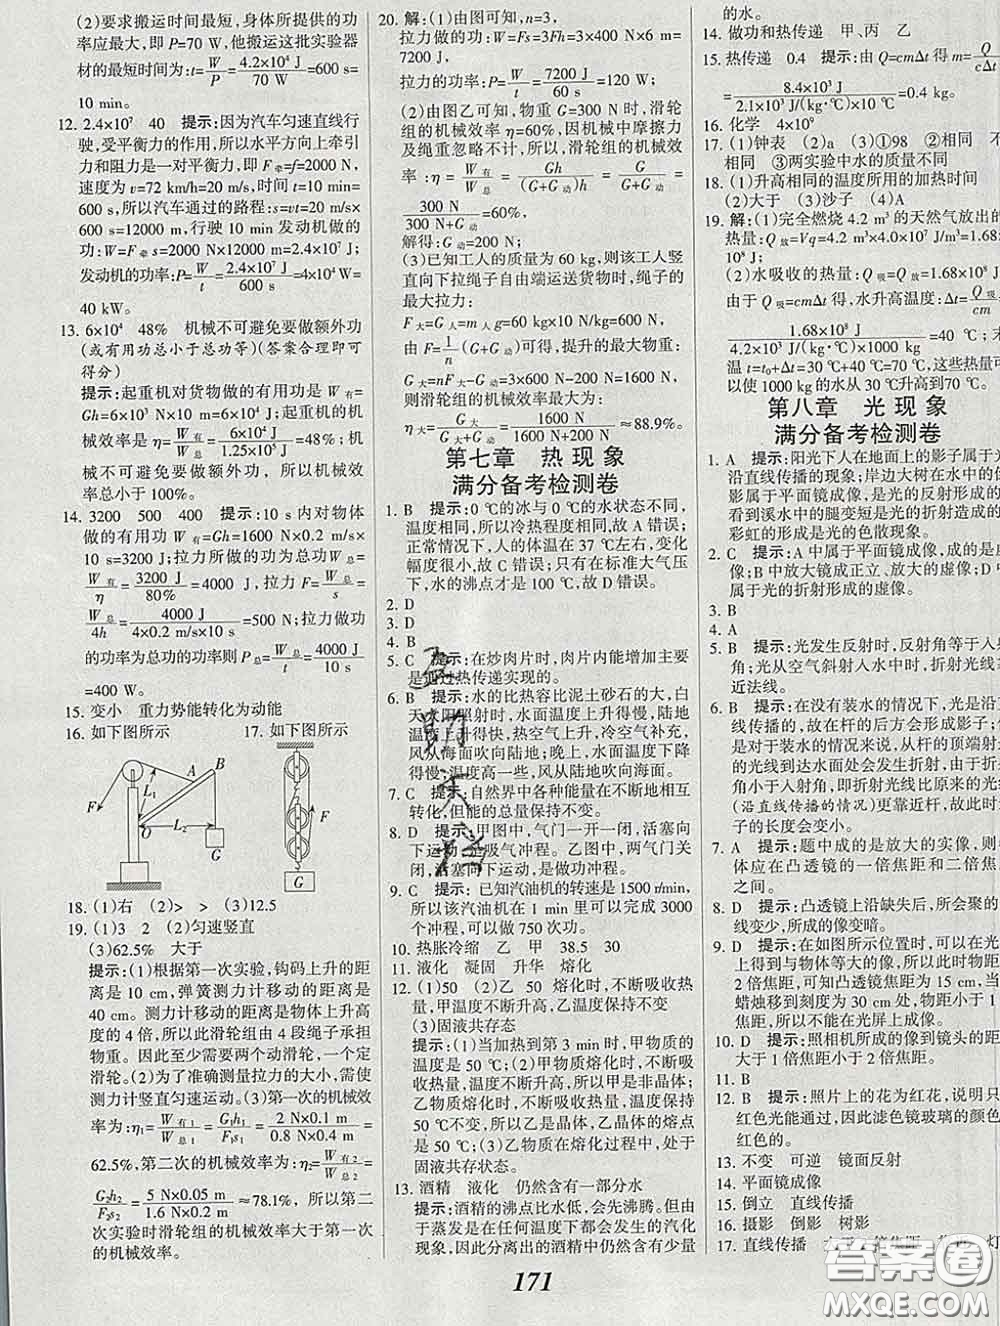 (2)要求搬运时间最短,身体所提供的功
率应最大,即 P=70 W,他搬运这批实验器
材的最短时间为:t=W/P=4.2×10⁴ J/70 W=600 s=
10 min。
12. 2.4×10⁷ 40 提示:因为汽车匀速直线行
驶,受平衡力的作用,所以水平方向上牵引
力和阻力是一对平衡力,即 F牵=f=2000 N,
速度为 v=72 km/h=20 m/s,时间 t=10 min=
600 s,所以汽车通过的路程:s=vt=20 m/s×
600 s=12000 m,行驶 10 min 发动机做的
功:W=F牵 s=2000 N×12000 m=2.4×10⁷ J,
发动机的功率:P=W/t=2.4×10⁷ J/600 s=4×10⁴ W=
40 kW。
13. 6×10⁴ 48% 机械不可避免要做额外功
(或有用功总小于总功等)(答案合理即可
得分)
提示:起重机对货物做的有用功是 W有=
Gh=6×10³ N×10 m=6×10⁴ J;起重机的机
械效率是 η=W有/W总=6×10⁴ J/1.25×10⁵ J=48%;机
械不可避免要做额外功,所以机械效
率总小于 100%。
14. 3200 500 400 提示:10 s 内对物体
做的有用功 W有=Gh=1600 N×0.2 m/s×
10 s=3200 J;拉力所做的功为总功 W总=
W有/η=3200 J/80%=4000 J,拉力 F=W总/s=
W总/4h=4000 J/4×0.2 m/s×10 s=500 N;拉力做功
的功率为总功的功率则 P总=W总/t=4000 J/10 s
=400 W。
15. 变小 重力势能转化为动能
16. 如下图所示 17. 如下图所示
F L₁ A B O L₂ G
F G
18. (1)右 (2)> > (3)12.5
19. (1)3 2 (2)匀速竖直
(3)62.5% 大于
提示:(1)根据第一次实验,钩码上升的距
离是 10 cm,弹簧测力计移动的距离是
40 cm。测力计移动的距离是物体上升高
度的 4 倍,所以此滑轮组由 4 段绳子承担
物重。因此至少需要两个动滑轮,一个定
滑轮。(2)为了准确测量拉力的大小,需使
测力计竖直匀速运动。(3)第一次的机械效
率为:η₁=W有1/W总1=G₁h₁/F₁s₁=2 N×0.1 m/0.8 N×0.4 m=
62.5%,第二次的机械效率为:η₂=W有2/W总2=
G₂h₂/F₂s₂=5 N×0.05 m/1.6 N×0.2 m≈78.1%,所以第二
次实验时滑轮组的机械效率大于第一次
的机械效率。
20. 解:(1)由图可知,n=3,
拉力做的功:W=Fs=3Fh=3×400 N×6 m=
7200 J
拉力的功率:P=W/t=7200 J/60 s=120 W;
(2)由图乙可知,物重 G=300 N时,滑轮
组的机械效率 η=60%,因机械中摩擦力
及绳重忽略不计,所以,滑轮组的机械效
率:η=W有/W总=Gh/(G+G动)h=G/G+G动=
300 N/300 N+G动=60%,
解得:G动=200 N;
(3)已知工人的质量为 60 kg,则该工人竖
直向下拉绳子自由端运送货物时,绳子的
最大拉力:
F大=G人=m人g=60 kg×10 N/kg=600 N,
由 F=1/n(G+G动)可得,提升的最大物重:
G大=nF大-G动=3×600 N-200 N=1600 N,
则滑轮组的机械效率最大为:
η大=G大/G大+G动=1600 N/1600 N+200 N≈88.9%。
第七章 热现象
满分备考检测卷
1. B 提示:0 ℃的冰与 0 ℃的水状态不同,
温度相同,所以冷热程度相同,故 A 错误;
正常情况下,人的体温在 37 ℃左右,变化
幅度很小,故 C 错误;只有在标准大气压
下,水的沸点才是 100 ℃,故 D 错误。
2. D
3. D
4. B
5. C 提示:在炒肉片时,肉片内能增加主要
是通过热传递实现的。
6. B 提示:水的比热容比泥土砂石的大,白
天太阳照射时,水面温度上升得慢,陆地
温度上升得快,热空气上升,冷空气补充,
风从海面吹向陆地;晚上,水面温度下降
得慢;温度高一些,风从陆地吹向海面。
7. C 提示:自然界中各种能量在不断地相互
转化,但能的总量保持不变。
8. D 提示:甲图中,气门一开一闭,活塞向
下运动,是吸气冲程。乙图中,两气门关闭,
活塞向下运动,是做功冲程。
9. C 提示:已知汽油机的转速是 1500 r/min,
所以该汽油机在 1 min 里可以完成 3000
个冲程,可以做 750 次功。
10. 热胀冷缩 乙 甲 38.5 30
11. 液化 凝固 升华 熔化
12. (1)50 (2)乙 50 熔化时,不断吸热,
甲温度不断升高,乙温度保持不变
(3)固液共存态
提示:(1)当加热到第 3 min 时,甲物质的
温度是 50 ℃;(2)甲物质熔化时,不断吸
收热量,温度不断升高,所以甲是非晶体;
乙物质熔化时,不断吸收热量,温度保持
50 ℃不变,所以乙是晶体,晶体的熔点是
50 ℃;(3)乙物质在熔化过程中,处于
固液共存状态。
13. 酒精 液化 仍然含有一部分水
提示:酒精的沸点比水低,会先沸腾。但
由于蒸发是在任何温度下都会发生的汽化
现象,因此分离出的酒精中仍然含有少量
的水。
14. 做功和热传递 甲、丙 乙
15. 热传递 0.4 提示:由 Q=cmΔt 得 m=Q/cΔt
=8.4×10³ J/2.1×10³ J/(kg·℃)×10 ℃=0.4 kg。
16. 化学 4×10⁹
17. (1)钟表 (2)a (3)①98 ②相同 不
相同 ③两实验中水的质量不同
18. (1)升高相同的温度所用的加热时间
(2)大于 (3)沙子 (4)A
19. 解:(1)完全燃烧 4.2 m³的天然气放出的
热量:Q放=Vq=4.2 m³×4.0×10⁷ J/m³=1.68×
10⁸ J;
(2)水吸收的热量:Q吸=Q放=1.68×10⁸
由于 Q吸=cmΔt 得,水升高温度:Δt=Q吸/cm
1.68×10⁸ J/4.2×10³ J/(kg·℃)×1000 kg=40 ℃;末
温 t=t₀+Δt=30 ℃+40 ℃=70 ℃,这些热量可
以使 1000 kg 的水从 30 ℃升高到70 ℃。
第八章 光现象
满分备考检测卷
1. A 提示:阳光下人在地面上的影子属于光
沿直线传播的现象;岸边大树在水中的倒
影属于平面镜成像,是光的反射形成的
看到溪水中的腿变短是光的折射造成的
彩虹的形成是光的色散现象。
2. C 提示:A 中属于平面镜成像,成的是虚
像;B 中放大镜成正立、放大的虚像;D 中
属于光的折射形成的虚像。
3. B
4. A
5. B 提示:光发生反射时,反射角等于入射
角;光从空气斜射入水中时,折射光线
近法线。
6. B 提示:在没有装水的情况下,光是沿直
线传播,故在杆的后方会形成影子;
于装水的情况来说,从杆的顶端射
线到达水面处会发生折射,由于
角小于入射角,即折射光线比原来的光线
(沿直线传播的情况)更靠近杆,故此时
子的长度会变小。
7. A 提示:题中成的是放大的实像,则
体应在凸透镜的一倍焦距和二倍焦
之间。
8. D 提示:凸透镜上沿缺失后,所会聚的光
线变少,所成的像变暗。
9. D 提示:在如图所示位置时,可以在光
上得到与物体等大的像,所以此时物距
2 倍焦距,可知凸透镜焦距为 15 cm,当
蜡烛移到刻度为 30 cm 处,物距小于 1
焦距,不会在光屏上成像。
10. D 提示:照相机所成的像到镜头的距离
大于 1 倍焦距小于 2 倍焦距。
11. B
12. C 提示:照片上的花为红花,说明只
红色光能通过,因此滤色镜玻璃的颜色
红色的。
13. 不变 可逆 镜面反射
14. 平面镜成像
15. 倒立 直线传播
16. 摄影 倒影 树影
17. 直线传播
171
答案圈
MXQE.COM